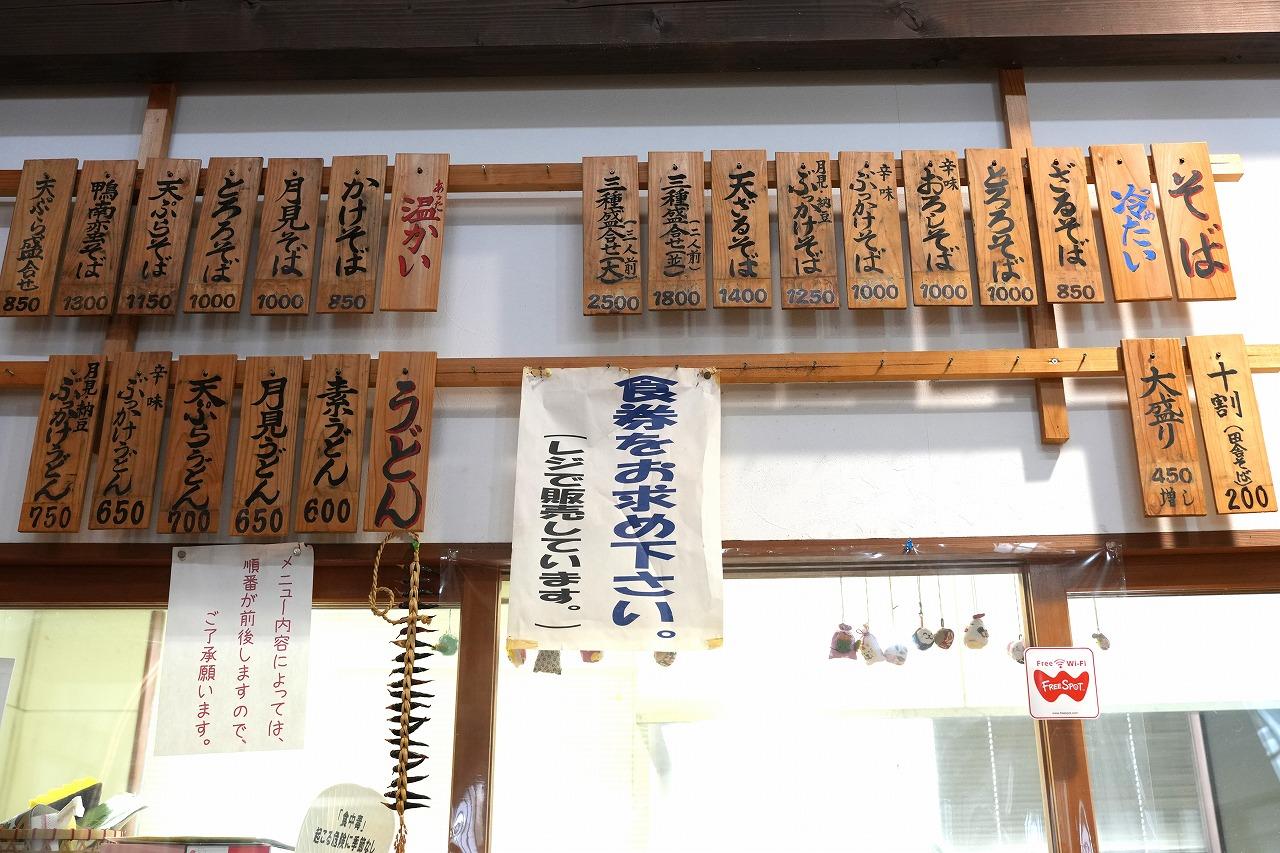 そば
冷たい
め
ざるそば
850
とろろそば
1000
辛味
おろしそば
1000
辛味
ぶっかけそば
1000
月見 納豆
ぶっかけそば
1250
天ざるそば
1400
三種盛合せ(並)
(二人前)
1800
三種盛合せ(大)
(三人前)
2500
温かい
あたた
かけそば
850
月見そば
1000
とろろそば
1000
天ぷらそば
1150
鴨南蛮そば
1300
天ぷら盛合せ
850
十割(田舎そば)
200
大盛り
450
増し
うどん
素うどん
600
月見うどん
650
天ぷらうどん
700
辛味
ぶっかけうどん
650
月見 納豆
ぶっかけうどん
750
食券をお求め下さい。
(レジで販売しています。)
メニュー内容によっては、
順番が前後しますので、
ご了承願います。
「食中毒」
起こる危険に季節なし
Free Wi-Fi
FREESPOT
www.freespot.com